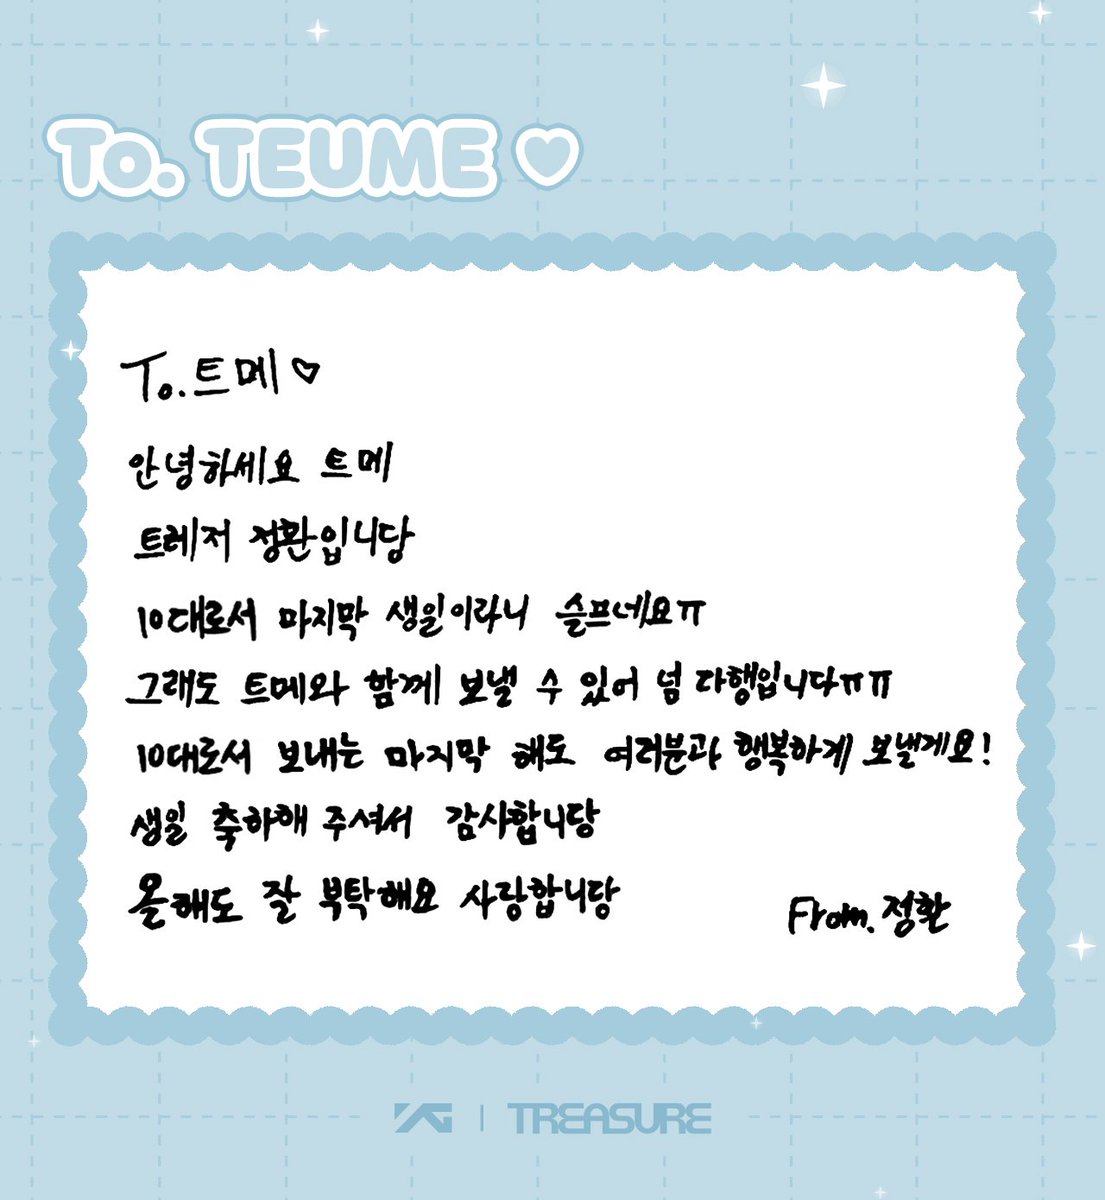 To. TEUME ♡
To. 트메 ♡
안녕하세요 트메
트레저 정환입니당
10대로서 마지막 생일이라니 슬프네요ㅠ
그래도 트메와 함께 보낼 수 있어 넘 다행입니다ㅠㅠ
10대로서 보내는 마지막 해도 여러분과 행복하게 보낼게요!
생일 축하해 주셔서 감사합니당
올해도 잘 부탁해요 사랑합니당
From. 정환
YG | TREASURE